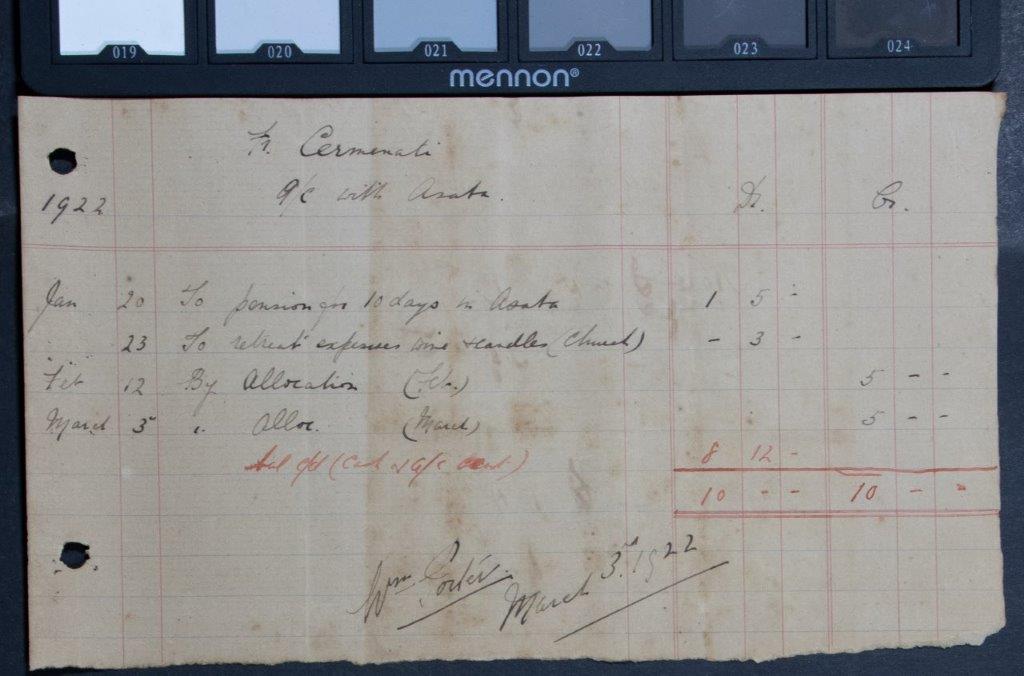 019 020 021 022 023 024
mennon®
Fr. Cermenati
1922 a/c with Asaba. Dr. Cr.
Jan 20 To pension for 10 days in Asaba 1 5 -
23 To retreat expenses wine & candles (Church) - 3 -
Feb 12 By Allocation (Feb.) 5 - -
March 3rd " Alloc. (March) 5 - -
bal c/d (Cash & a/c sent) 8 12 -
10 - - 10 - -
Wm. Porter. March 3rd. 1922